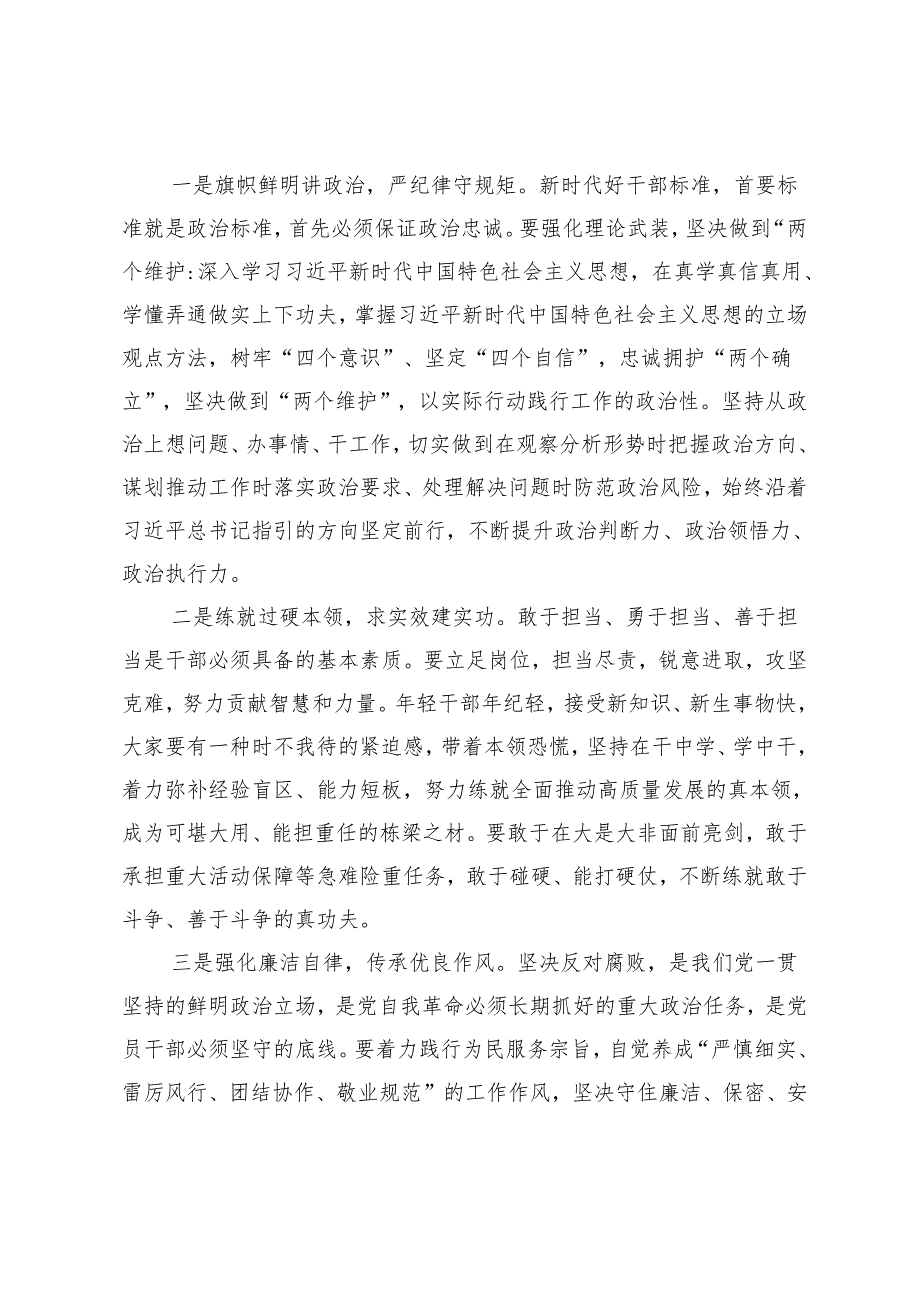 一是旗帜鲜明讲政治，严纪律守规矩。新时代好干部标准，首要标
准就是政治标准，首先必须保证政治忠诚。要强化理论武装，坚决做到“两
个维护:深入学习习近平新时代中国特色社会主义思想，在真学真信真用、
学懂弄通做实上下功夫，掌握习近平新时代中国特色社会主义思想的立场
观点方法，树牢“四个意识”、坚定“四个自信”，忠诚拥护“两个确
立”，坚决做到“两个维护”，以实际行动践行工作的政治性。坚持从政
治上想问题、办事情、干工作，切实做到在观察分析形势时把握政治方向、
谋划推动工作时落实政治要求、处理解决问题时防范政治风险，始终沿着
习近平总书记指引的方向坚定前行，不断提升政治判断力、政治领悟力、
政治执行力。
二是练就过硬本领，求实效建实功。敢于担当、勇于担当、善于担
当是干部必须具备的基本素质。要立足岗位，担当尽责，锐意进取，攻坚
克难，努力贡献智慧和力量。年轻干部年纪轻，接受新知识、新生事物快，
大家要有一种时不我待的紧迫感，带着本领恐慌，坚持在干中学、学中干，
着力弥补经验盲区、能力短板，努力练就全面推动高质量发展的真本领，
成为可堪大用、能担重任的栋梁之材。要敢于在大是大非面前亮剑，敢于
承担重大活动保障等急难险重任务，敢于碰硬、能打硬仗，不断练就敢于
斗争、善于斗争的真功夫。
三是强化廉洁自律，传承优良作风。坚决反对腐败，是我们党一贯
坚持的鲜明政治立场，是党自我革命必须长期抓好的重大政治任务，是党
员干部必须坚守的底线。要着力践行为民服务宗旨，自觉养成“严慎细实、
雷厉风行、团结协作、敬业规范”的工作作风，坚决守住廉洁、保密、安